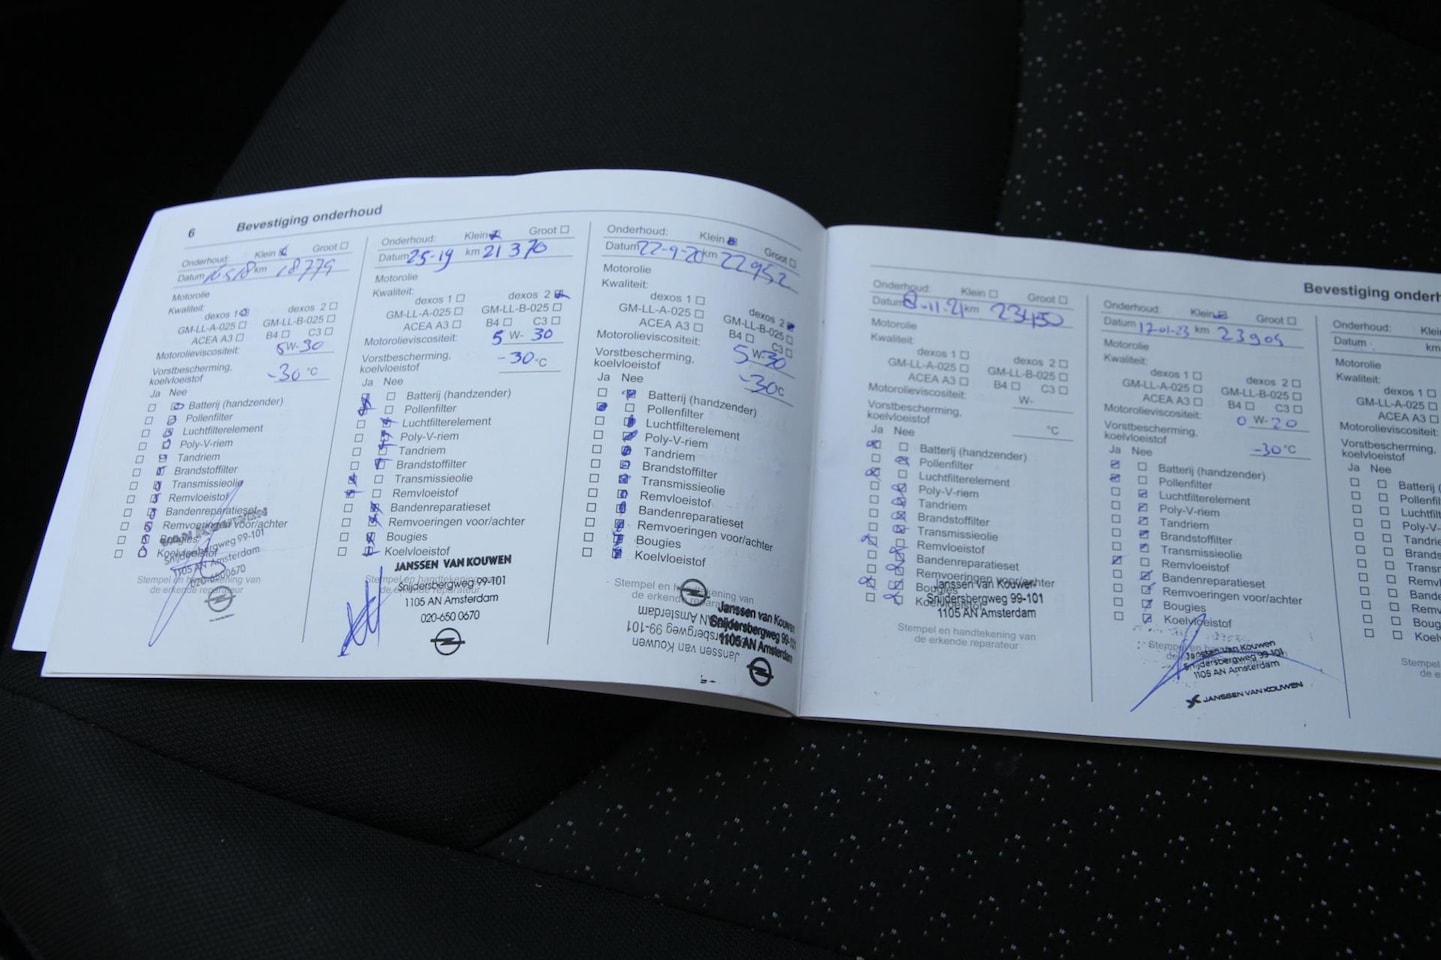 6 Bevestiging onderhoud
Onderhoud: Klein Groot
Datum km 18779
Motorolie
Kwaliteit:
dexos 1 dexos 2
GM-LL-A-025 GM-LL-B-025
ACEA A3 B4 C3
Motorolieviscositeit: 5 W- 30
Vorstbescherming,
koelvloeistof -30 °C
Ja Nee
Batterij (handzender)
Pollenfilter
Luchtfilterelement
Poly-V-riem
Tandriem
Brandstoffilter
Transmissieolie
Remvloeistof
Bandenreparatieset
Remvoeringen voor/achter
Bougies
Koelvloeistof
Stempel en handtekening van
de erkende reparateur
Snijdersbergweg 99-101
1105 AN Amsterdam
020-6500670
Onderhoud: Klein Groot
Datum 25-19 km 21370
Motorolie
Kwaliteit:
dexos 1 dexos 2
GM-LL-A-025 GM-LL-B-025
ACEA A3 B4 C3
Motorolieviscositeit: 5 W- 30
Vorstbescherming,
koelvloeistof -30 °C
Ja Nee
Batterij (handzender)
Pollenfilter
Luchtfilterelement
Poly-V-riem
Tandriem
Brandstoffilter
Transmissieolie
Remvloeistof
Bandenreparatieset
Remvoeringen voor/achter
Bougies
Koelvloeistof
JANSSEN VAN KOUWEN
Snijdersbergweg 99-101
1105 AN Amsterdam
020-650 0670
Onderhoud: Klein Groot
Datum 22-9-20 km 22952
Motorolie
Kwaliteit:
dexos 1 dexos 2
GM-LL-A-025 GM-LL-B-025
ACEA A3 B4 C3
Motorolieviscositeit: 5 W- 30
Vorstbescherming,
koelvloeistof -30 °C
Ja Nee
Batterij (handzender)
Pollenfilter
Luchtfilterelement
Poly-V-riem
Tandriem
Brandstoffilter
Transmissieolie
Remvloeistof
Bandenreparatieset
Remvoeringen voor/achter
Bougies
Koelvloeistof
Stempel en handtekening van
de erkende reparateur
Janssen van Kouwen
Snijdersbergweg 99-101
1105 AN Amsterdam
Janssen van Kouwen
Snijdersbergweg 99-101
1105 AN Amsterdam
Bevestiging onderh
Onderhoud: Klein Groot
Datum 8-11-21 km 23450
Motorolie
Kwaliteit:
dexos 1 dexos 2
GM-LL-A-025 GM-LL-B-025
ACEA A3 B4 C3
Motorolieviscositeit: W-
Vorstbescherming,
koelvloeistof °C
Ja Nee
Batterij (handzender)
Pollenfilter
Luchtfilterelement
Poly-V-riem
Tandriem
Brandstoffilter
Transmissieolie
Remvloeistof
Bandenreparatieset
Remvoeringen voor/achter
Bougies
Koelvloeistof
Janssen van Kouwen
Snijdersbergweg 99-101
1105 AN Amsterdam
Stempel en handtekening van
de erkende reparateur
Onderhoud: Klein Groot
Datum 17-01-23 km 23905
Motorolie
Kwaliteit:
dexos 1 dexos 2
GM-LL-A-025 GM-LL-B-025
ACEA A3 B4 C3
Motorolieviscositeit: 0 W- 20
Vorstbescherming,
koelvloeistof -30 °C
Ja Nee
Batterij (handzender)
Pollenfilter
Luchtfilterelement
Poly-V-riem
Tandriem
Brandstoffilter
Transmissieolie
Remvloeistof
Bandenreparatieset
Remvoeringen voor/achter
Bougies
Koelvloeistof
Janssen van Kouwen
Snijdersbergweg 99-101
1105 AN Amsterdam
JANSSEN VAN KOUWEN
Onderhoud: Klein
Datum km
Motorolie
Kwaliteit:
dexos 1
GM-LL-A-025
ACEA A3
Motorolieviscositeit:
Vorstbescherming,
koelvloeistof
Ja Nee
Batterij (
Pollenfil
Luchtfi
Poly-V-
Tandrie
Brands
Transm
Remvl
Bande
Remv
Boug
Koelv
Stempel
de e